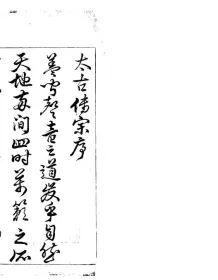 太古傳宗序
蓋聞聲音之道發乎自然
天地兩間四時萬籟之